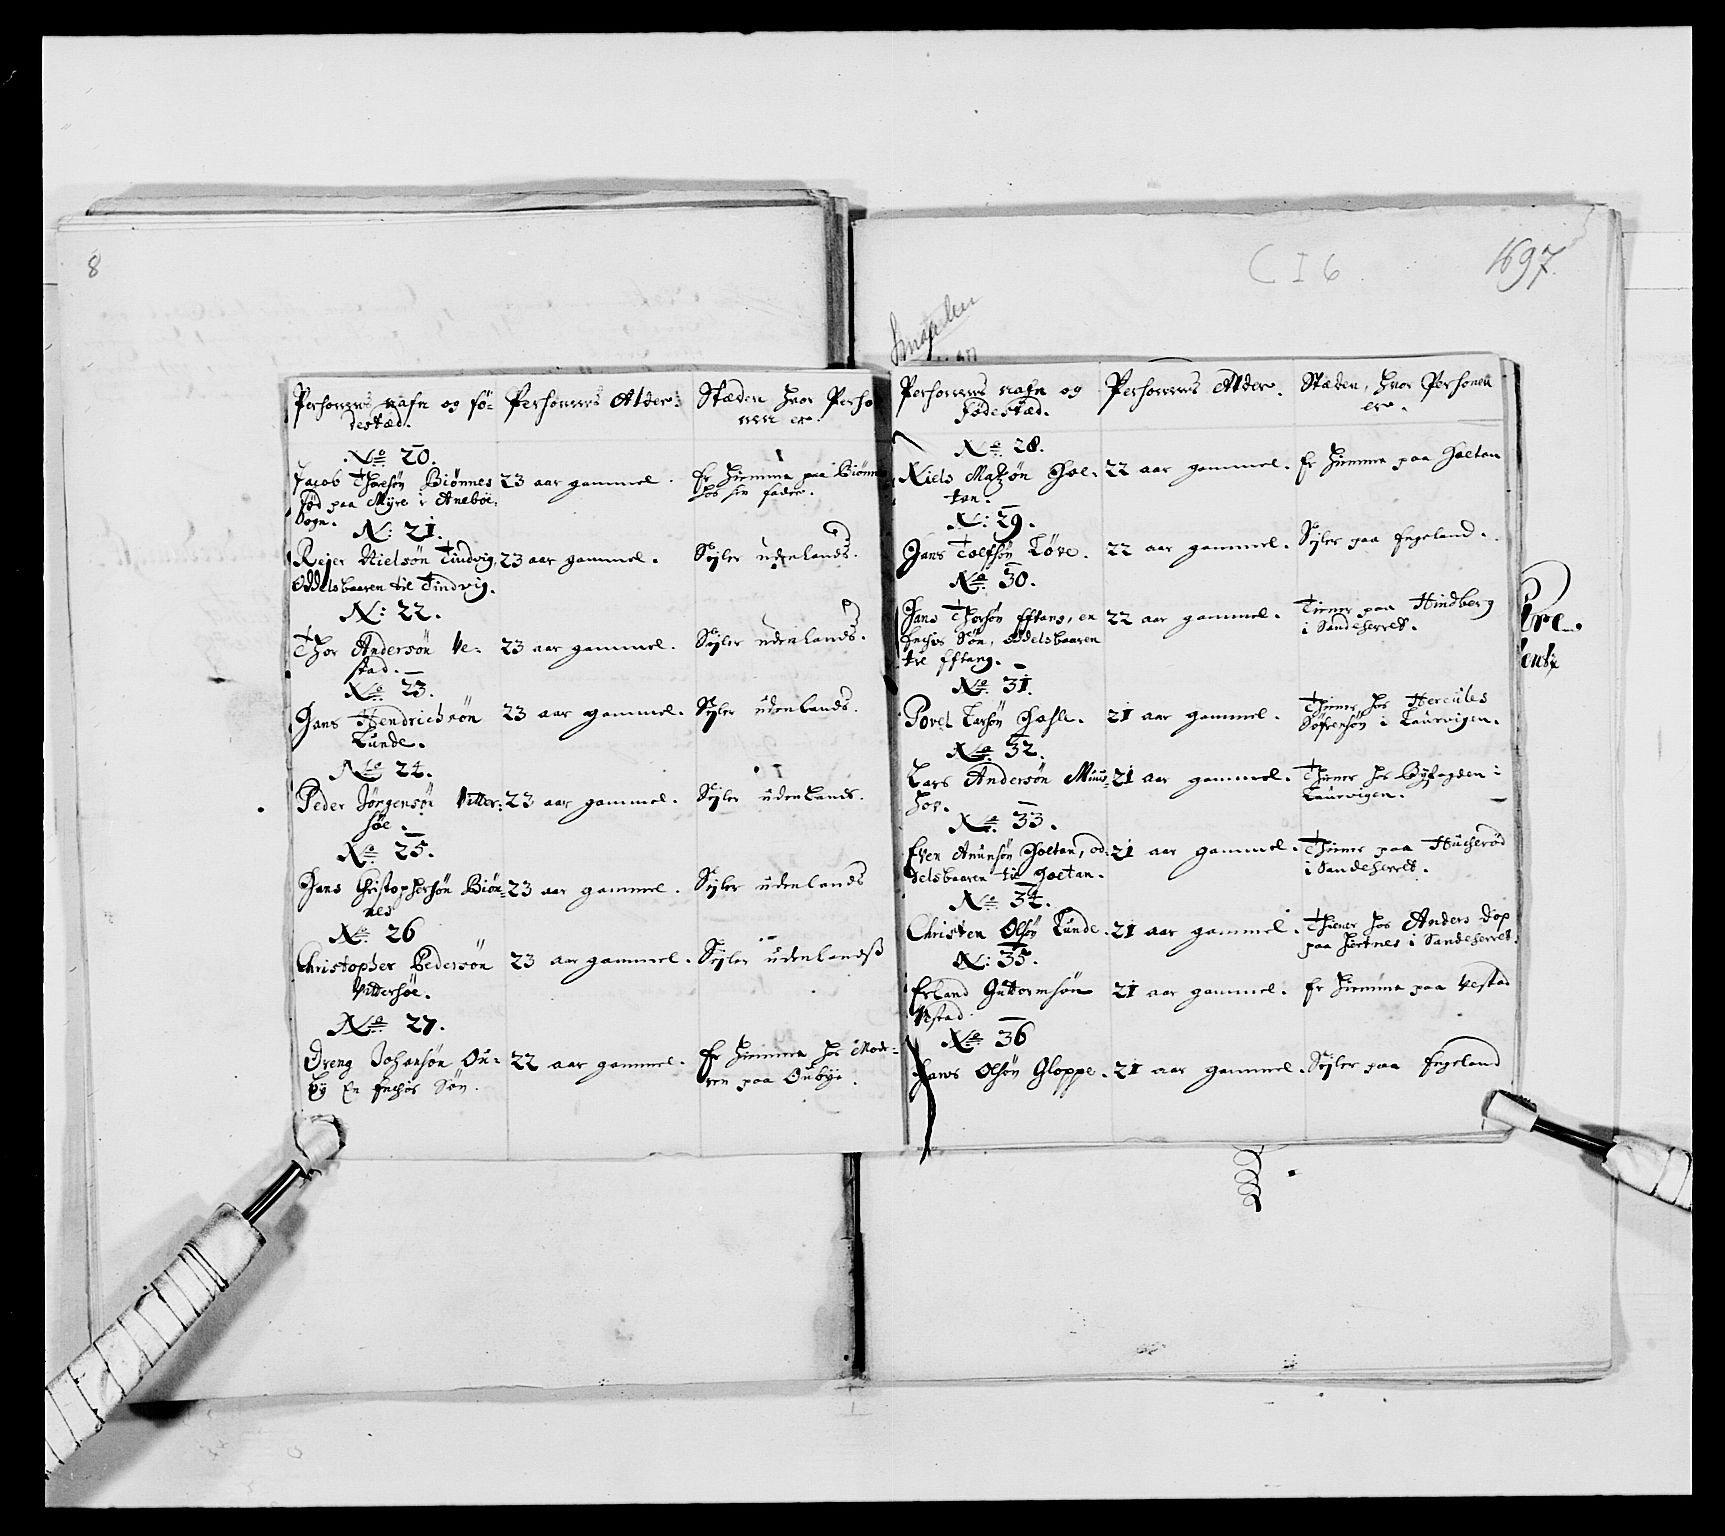 8
C I 6.
1697.
Personens nafn og fö-
destæd.
Personens Alder.
Stæden hvor Perso
nen er.
No 20.
Jacob Thorsöy Biönnes
föd paa Myre i Anebøe
Sogn.
23 aar gammel.
Er hiemme paa Biönnes
hos sin fader.
N: 21.
Rejer Nielsön Tindvig,
Oddelsbaaren til Tindvig.
23 aar gammel.
Sejler udenlands.
N: 22.
Thor Andersön Ve-
stad.
23 aar gammel.
Sejler udenlands.
No 23.
Hans Hendrichsön
Lunde.
23 aar gammel.
Sejler udenlands.
No 24.
Peder Jörgensön Vitter-
söe.
23 aar gammel.
Sejler udenlands.
No 25.
Hans Christophersön Biön-
nes
23 aar gammel.
Sejler udenlands
No 26
Christopher Pedersön
Vittersöe.
23 aar gammel.
Sejler udenlandsß
No 27.
Dreng Johansön Ou-
by En Enches Sön.
22 aar gammel.
Er hiemme hos Mode-
ren paa Oubye.
Personens nafn og
födestæd.
Personens Alder.
Stæden, hvor Personen
er.
No 28.
Niels Matzön Hol-
tan.
22 aar gammel.
Er hiemme paa Holtan
N: 29.
Hans Tolfsöy Löve.
22 aar gammel.
Sejler paa Engeland.
No 30.
Hans Thorsöy Eftang, en
Enches Sön, oddelsbaaren
til Eftang.
22 aar gammel.
Tiener paa Hindberg
i Sandeherret.
No 31.
Povel Larsöy Hasle.
21 aar gammel.
Thiener hos Hercules
Söfrensöy i Laurvigen.
No 32.
Lars Andersön Muus-
hoe.
21 aar gammel.
Thiener hos Byfogden i
Laurvigen.
No 33.
Even Anunsöy Holtan, od-
delsbaaren til Holtan.
21 aar gammel.
Thiener paa Hucheröd
i Sandeherret.
No 34.
Christen Olsöy Lunde.
21 aar gammel.
Thiener hos Anders Dop
paa Hiertnes i Sandeherret.
N: 35.
Erland Guttormsön
Vestad.
21 aar gammel.
Er hiemme paa Vestad
No 36
Hans Olsöy Gloppe.
21 aar gammel.
Sejler paa Engeland